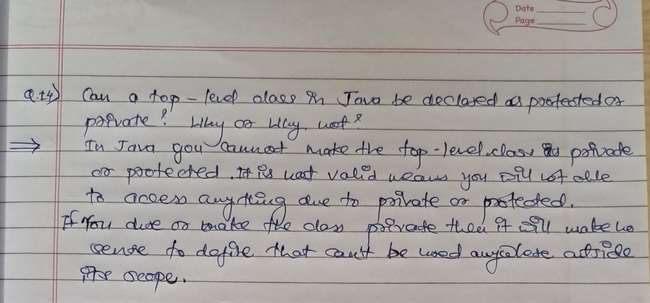 Date
Page
Q.14) Can a top-level class in Java be declared as protected or
private? Why or Why not?
⇒ In Java you cannot make the top-level class as private
or protected. It is not valid means you will not able
to access anything due to private or protected.
If You due or make the class private then it will make no
sense to define that can't be used anywhere outside
its scope.